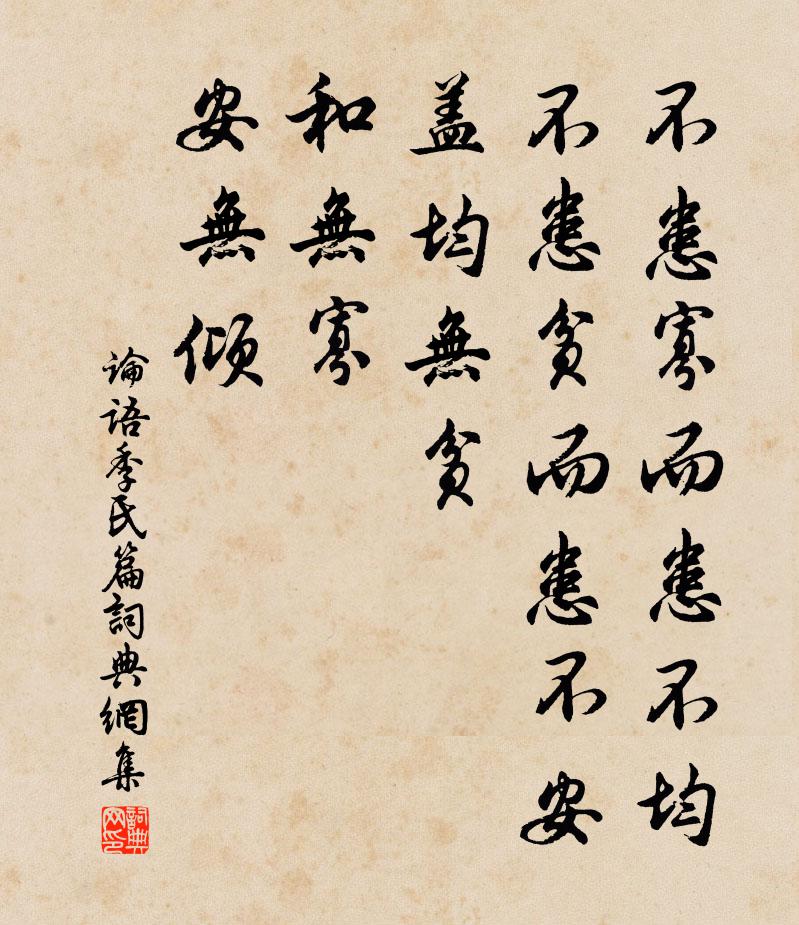 不患寡而患不均
不患貧而患不安
蓋均無貧
和無寡
安無傾
論語季氏篇詞典網集
詞典
网印